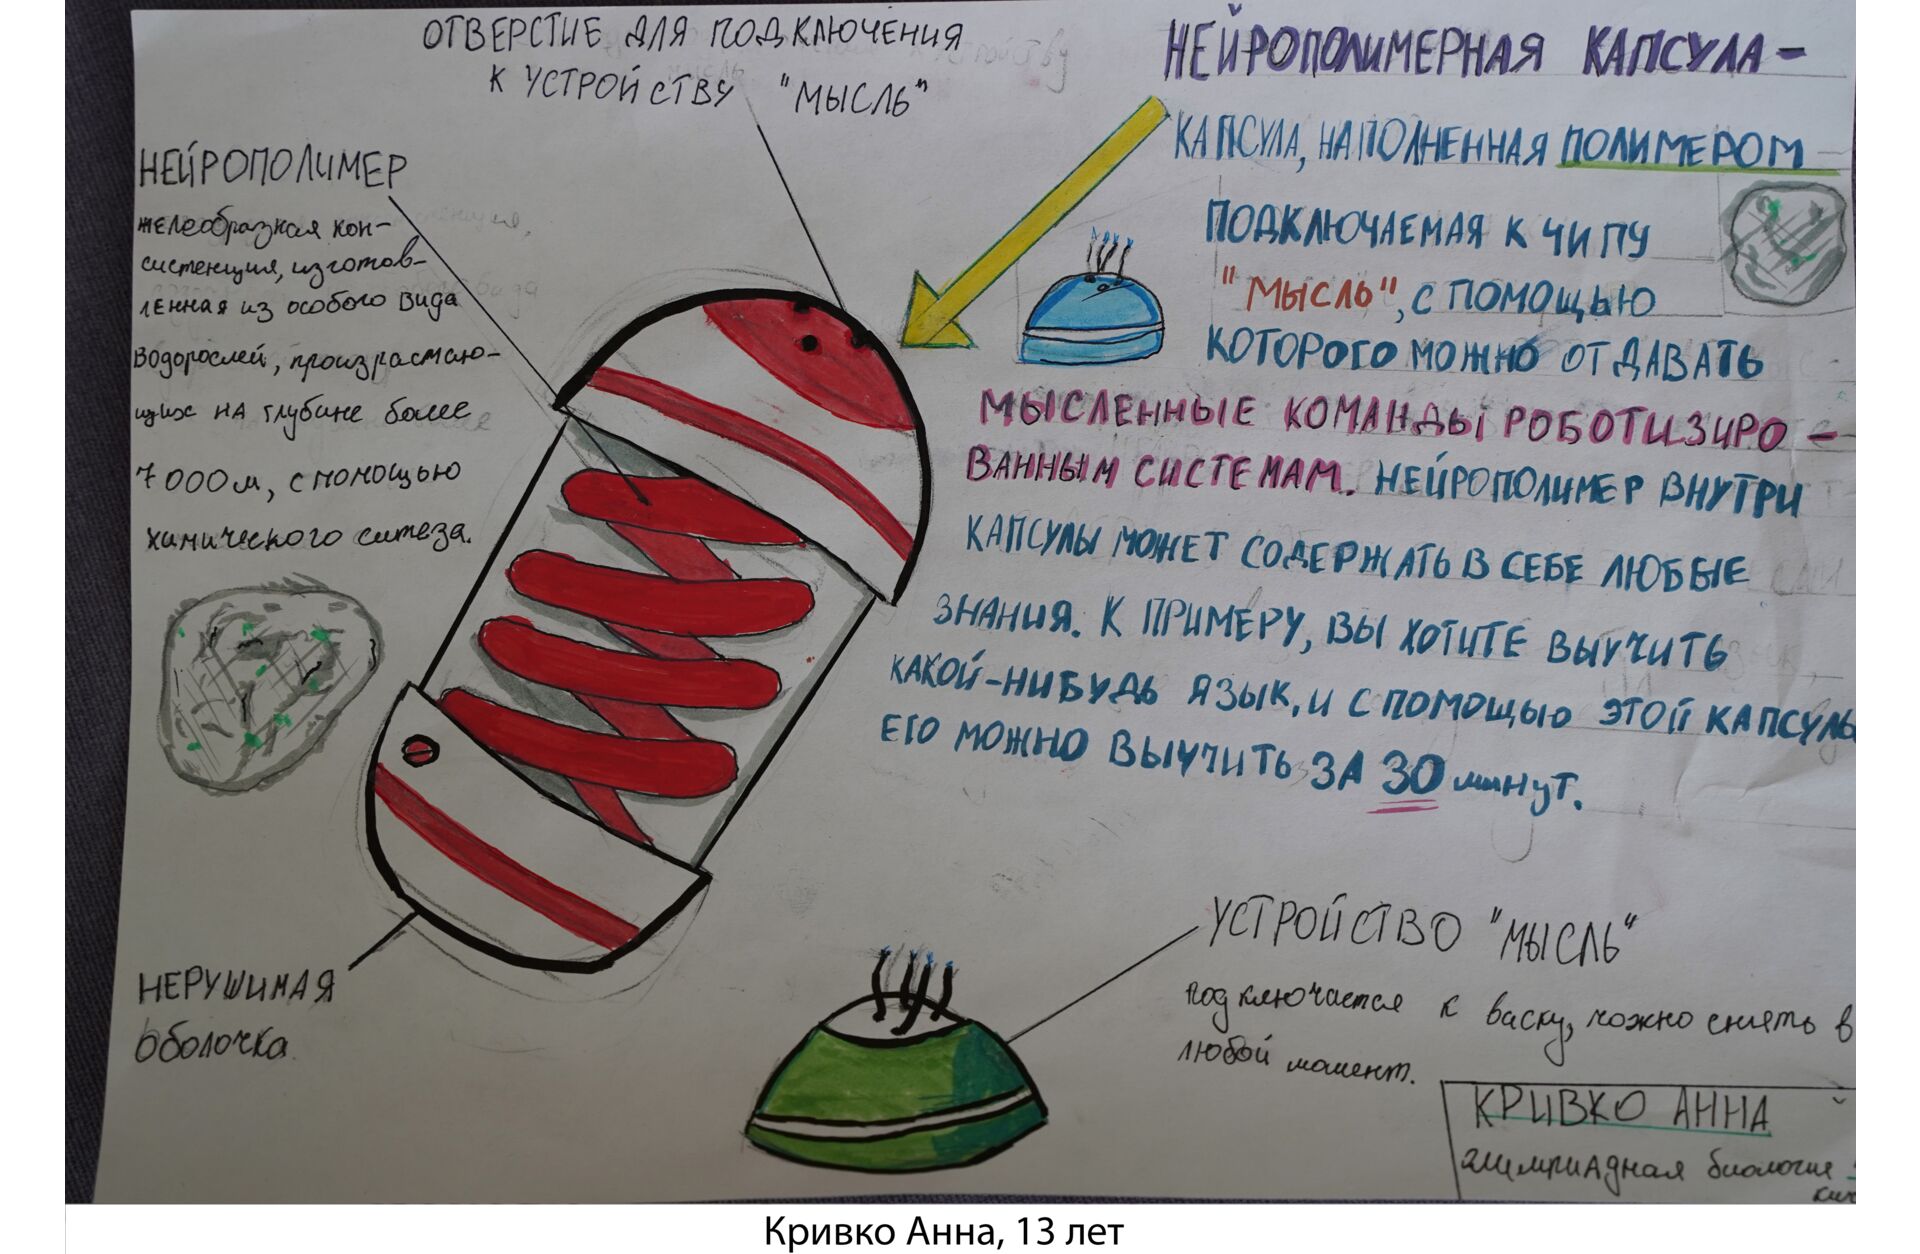 ОТВЕРСТИЕ ДЛЯ ПОДКЛЮЧЕНИЯ
К УСТРОЙСТВУ "МЫСЛЬ"
НЕЙРОПОЛИМЕР
желеобразная кон-
систенция, изготов-
ленная из особого вида
водорослей, произрастаю-
щих на глубине более
7000м, с помощью
химического ситеза.
НЕРУШИМАЯ
оболочка
НЕЙРОПОЛИМЕРНАЯ КАПСУЛА-
КАПСУЛА, НАПОЛНЕННАЯ ПОЛИМЕРОМ
ПОДКЛЮЧАЕМАЯ К ЧИПУ
"МЫСЛЬ", С ПОМОЩЬЮ
КОТОРОГО МОЖНО ОТДАВАТЬ
МЫСЛЕННЫЕ КОМАНДЫ РОБОТИЗИРО-
ВАННЫМ СИСТЕМАМ. НЕЙРОПОЛИМЕР ВНУТРИ
КАПСУЛЫ МОЖЕТ СОДЕРЖАТЬ В СЕБЕ ЛЮБЫЕ
ЗНАНИЯ. К ПРИМЕРУ, ВЫ ХОТИТЕ ВЫУЧИТЬ
КАКОЙ-НИБУДЬ ЯЗЫК, И С ПОМОЩЬЮ ЭТОЙ КАПСУЛЫ
ЕГО МОЖНО ВЫУЧИТЬ ЗА 30 минут.
УСТРОЙСТВО "МЫСЛЬ"
подключается к виску, можно снять в
любой момент.
КРИВКО АННА
олимпиадная биология
Кривко Анна, 13 лет